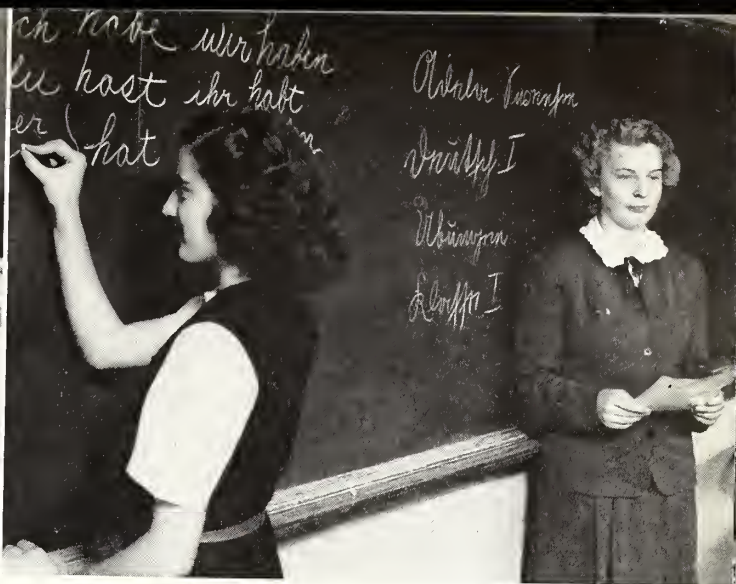 ch habe wir haben
du hast ihr habt
er ) hat
Adele
Deutsch I
Übungen
Klasse I